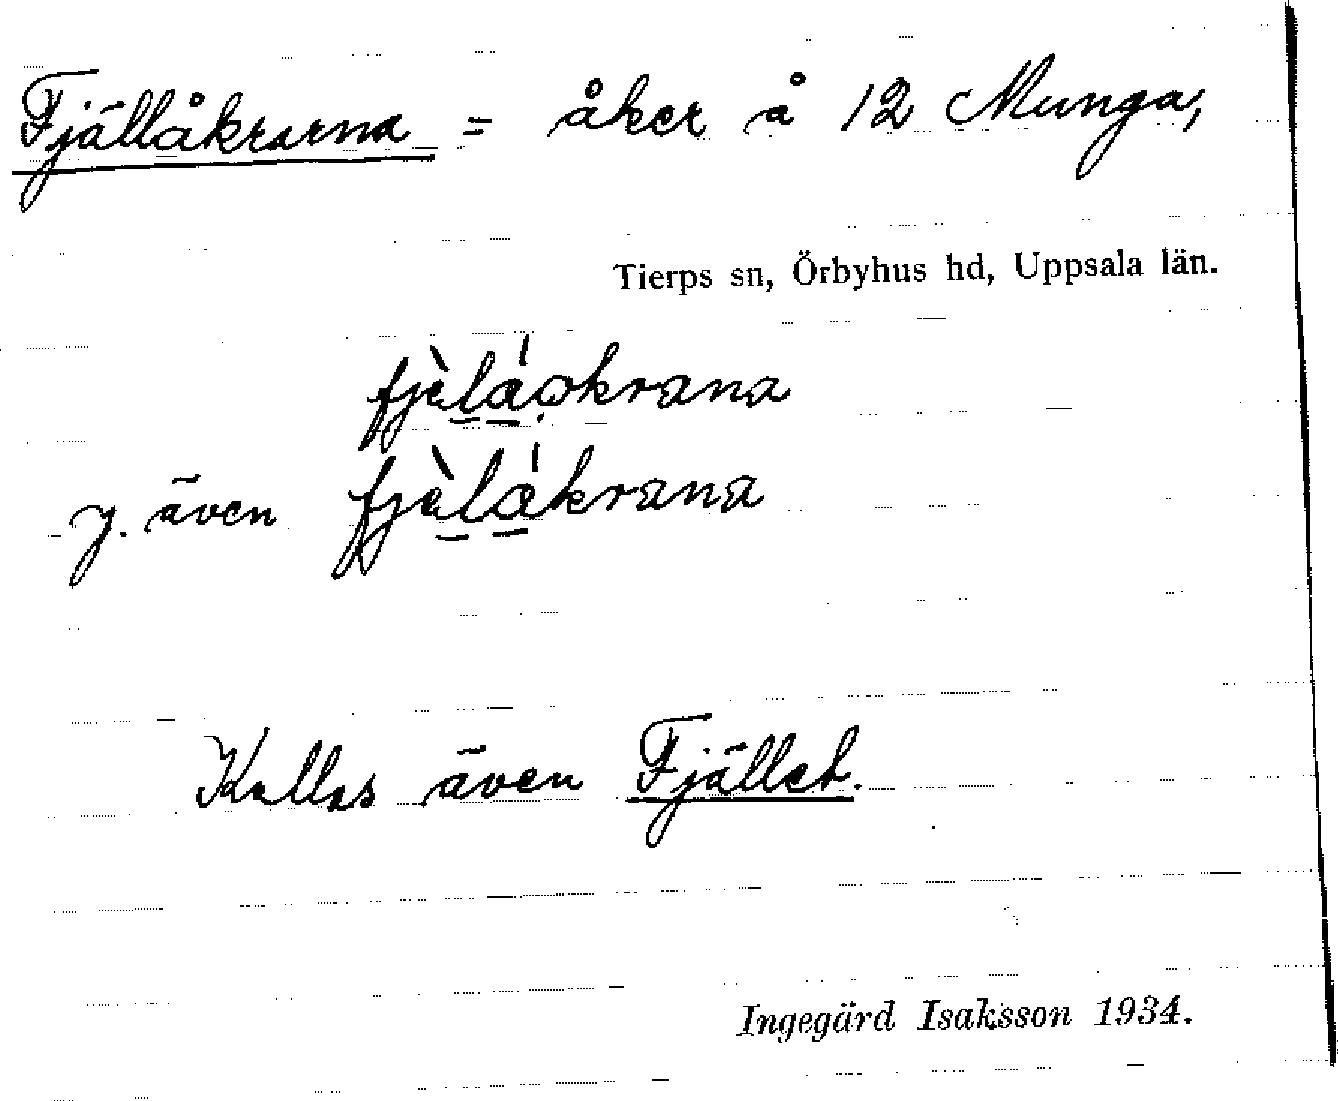 Fjällåkrarna = åker å 12 Munga,
Tierps sn, Örbyhus hd, Uppsala län.
fjèláokrana
y. även fjèlákrana
Kallas även Fjället.
Ingegärd Isaksson 1934.